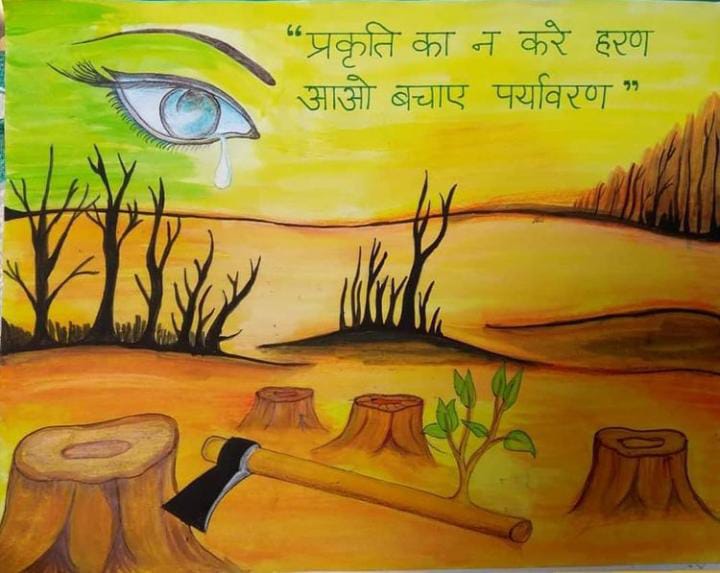 “प्रकृति का न करे हरण
आओ बचाए पर्यावरण”